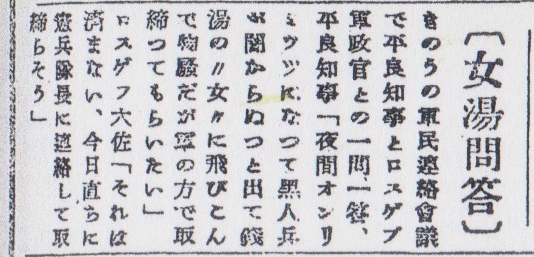 〔女湯問答〕
きのうの軍民連絡會議
で平良知事とロスゲブ
軍政官との一問一答、
平良知事「夜間オンリ
ミツツになつて黒人兵
が闇からぬつと出て錢
湯の〃女〃に飛びこん
で物騒だが軍の方で取
締つてもらいたい」
ロスゲフ大佐「それは
済まない、今日直ちに
憲兵隊長に連絡して取
締らそう」